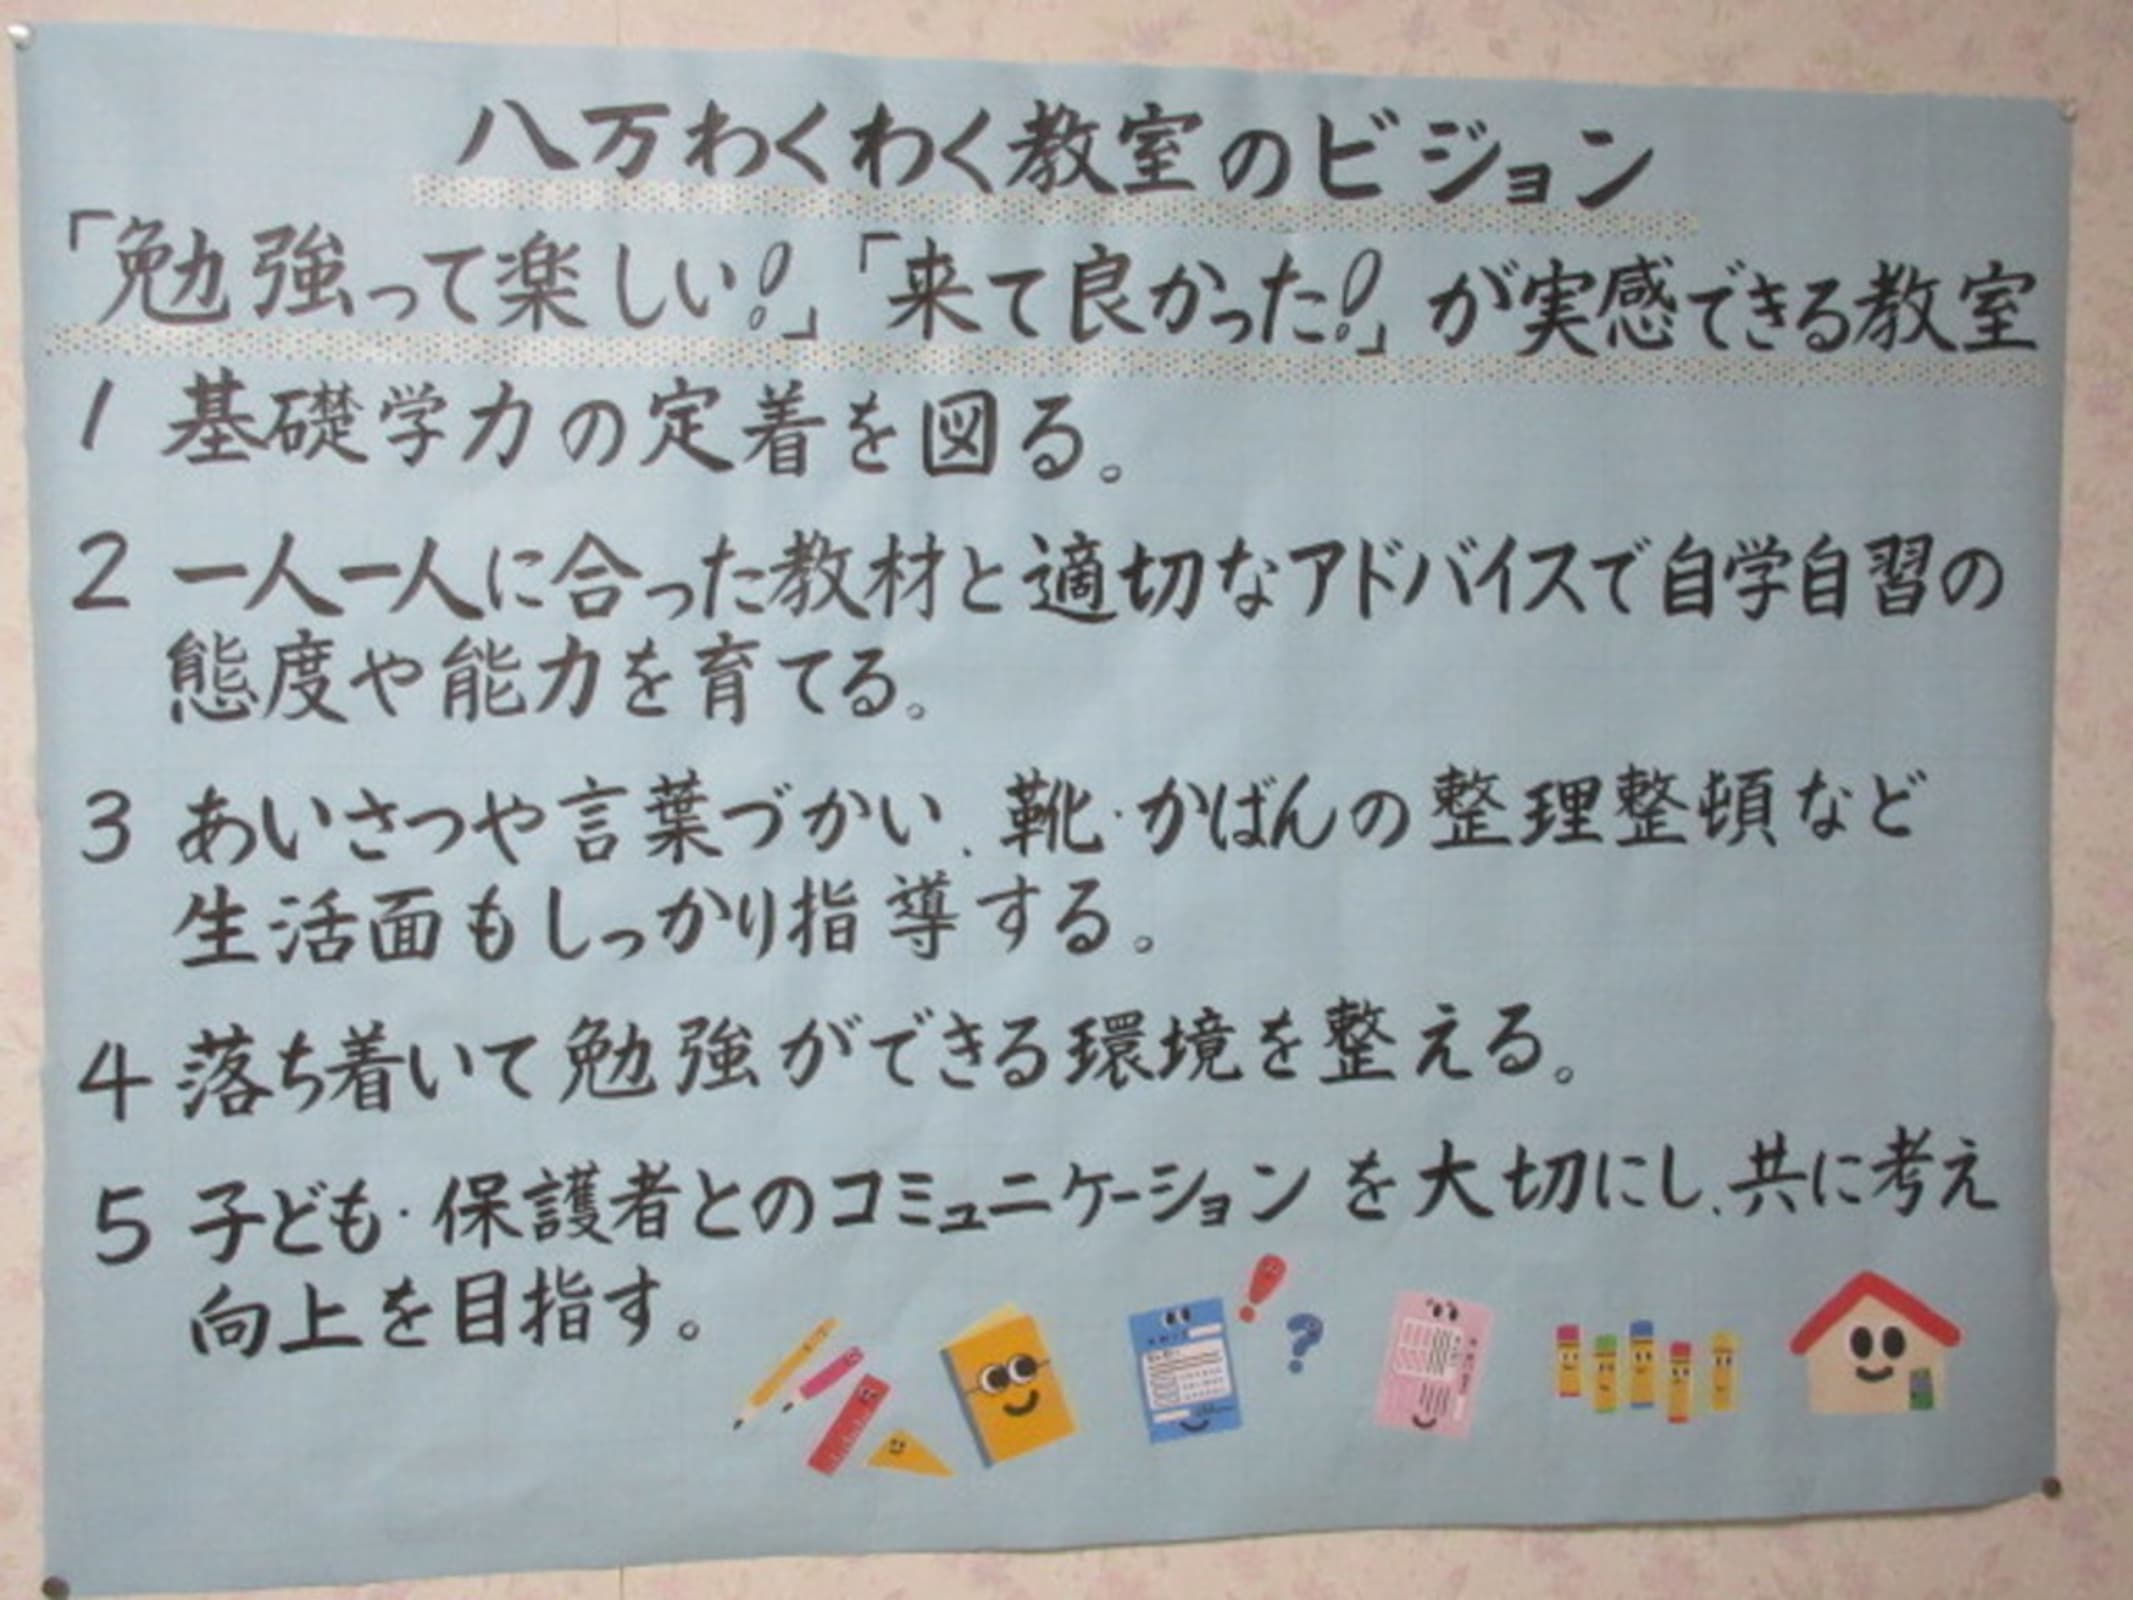 八万わくわく教室のビジョン
「勉強って楽しい!」「来て良かった!」が実感できる教室
1 基礎学力の定着を図る。
2 一人一人に合った教材と適切なアドバイスで自学自習の
態度や能力を育てる。
3 あいさつや言葉づかい、靴・かばんの整理整頓など
生活面もしっかり指導する。
4 落ち着いて勉強ができる環境を整える。
5 子ども・保護者とのコミュニケーションを大切にし、共に考え
向上を目指す。
! ?